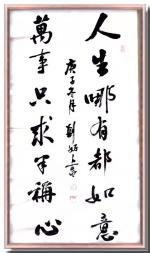 人生哪有都如意
萬事只求半稱心
庚子冬月